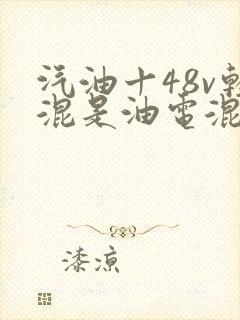 汽油十48v輕
混是油電混
漆凉